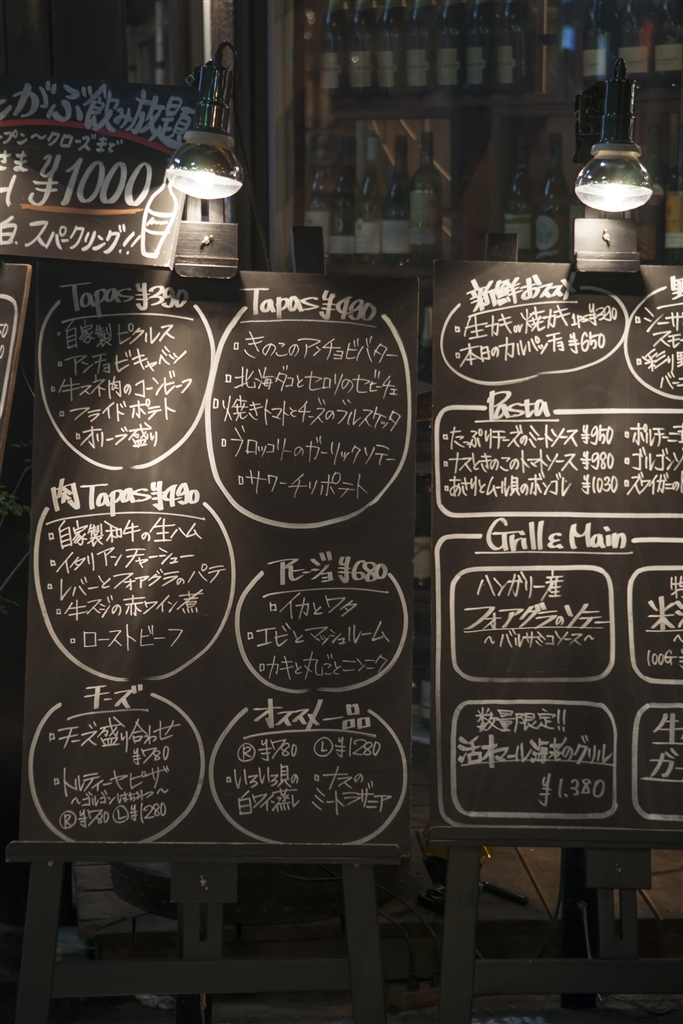 がぶ飲み放題
プン～クローズまで
さま ¥1000
白、スパークリング!!
Tapas ¥380
・自家製ピクルス
・アンチョビキャベツ
・牛スネ肉のコンビーフ
・フライドポテト
・オリーブ盛り
Tapas ¥490
・きのこのアンチョビバター
・北海ダコとセロリのセビーチェ
・焼きトマトとチーズのブルスケッタ
・ブロッコリーのガーリックソテー
・サワーチリポテト
肉Tapas ¥490
・自家製和牛の生ハム
・イタリアンチャーシュー
・レバーとフォアグラのパテ
・牛スジの赤ワイン煮
・ローストビーフ
アヒージョ ¥680
・イカとワタ
・エビとマッシュルーム
・カキと丸ごとニンニク
チーズ
・チーズ盛り合わせ
¥780
・トルティーヤピザ
～ゴルゴンはちみつ～
Ⓡ¥780 Ⓛ¥1280
オススメ一品
Ⓡ¥780 Ⓛ¥1280
・いろいろ貝の白ワイン蒸し
・ナスのミートラザニア
新鮮おススメ
・生ガキor焼ガキ 1ps ¥390
・本日のカルパッチョ ¥650
シーザ
スモー
彩り野
バーニ
Pasta
・たっぷりチーズのミートソース ¥950
・ナスときのこのトマトソース ¥980
・あさりとムール貝のボンゴレ ¥1030
・ポルチーニ
・ゴルゴンゾ
・ズワイガニの
Grill & Main
ハンガリー産
フォアグラのソテー
～バルサミコソース～
特
米沢
100G
数量限定!!
活オマール海老のグリル
¥1,380
牛
ガー